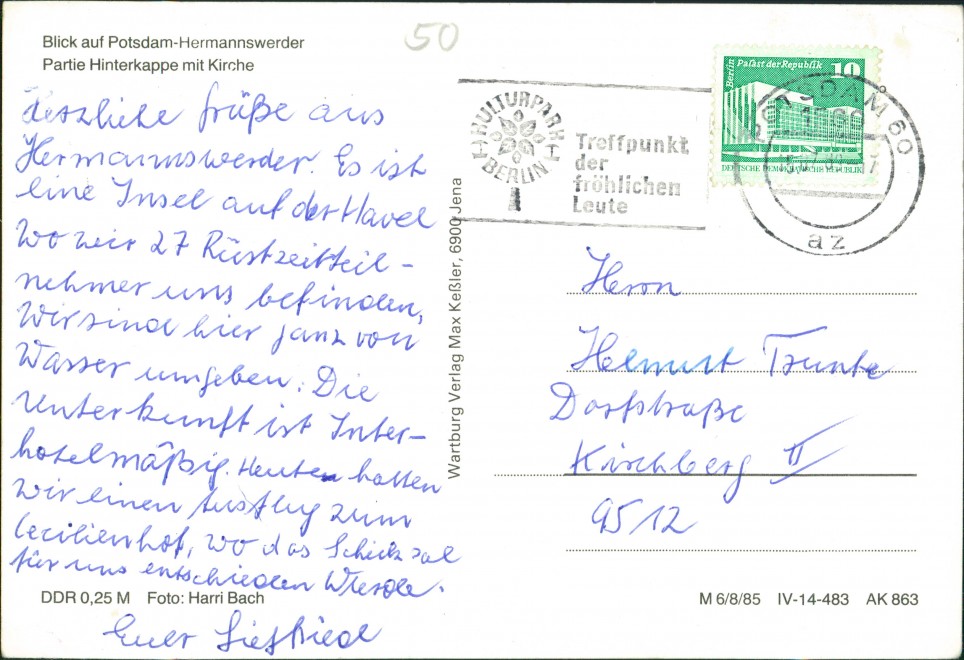 Blick auf Potsdam-Hermannswerder
Partie Hinterkappe mit Kirche
50
Herzliche Grüße aus
Hermannswerder. Es ist
eine Insel auf der Havel
wo wir 27 Rüstzeitteil-
nehmer uns befinden,
Wir sind hier ganz von
Wasser umgeben. Die
Unterkunft ist Inter-
hotelmäßig. Heute hatten
wir einen Ausflug zum
Cecilienhof, wo das Schicksal
für uns entschieden wurde.
Euer Siegfried
DDR 0,25 M Foto: Harri Bach
Wartburg Verlag Max Keßler, 6900 Jena
KULTURPARK
BERLIN
Treffpunkt
der
fröhlichen
Leute
Berlin Palast der Republik 10
DEUTSCHE DEMOKRATISCHE REPUBLIK
POTSDAM 60
az
Herrn
Helmut
Dorfstraße
Kirchberg II
9512
M 6/8/85 IV-14-483 AK 863